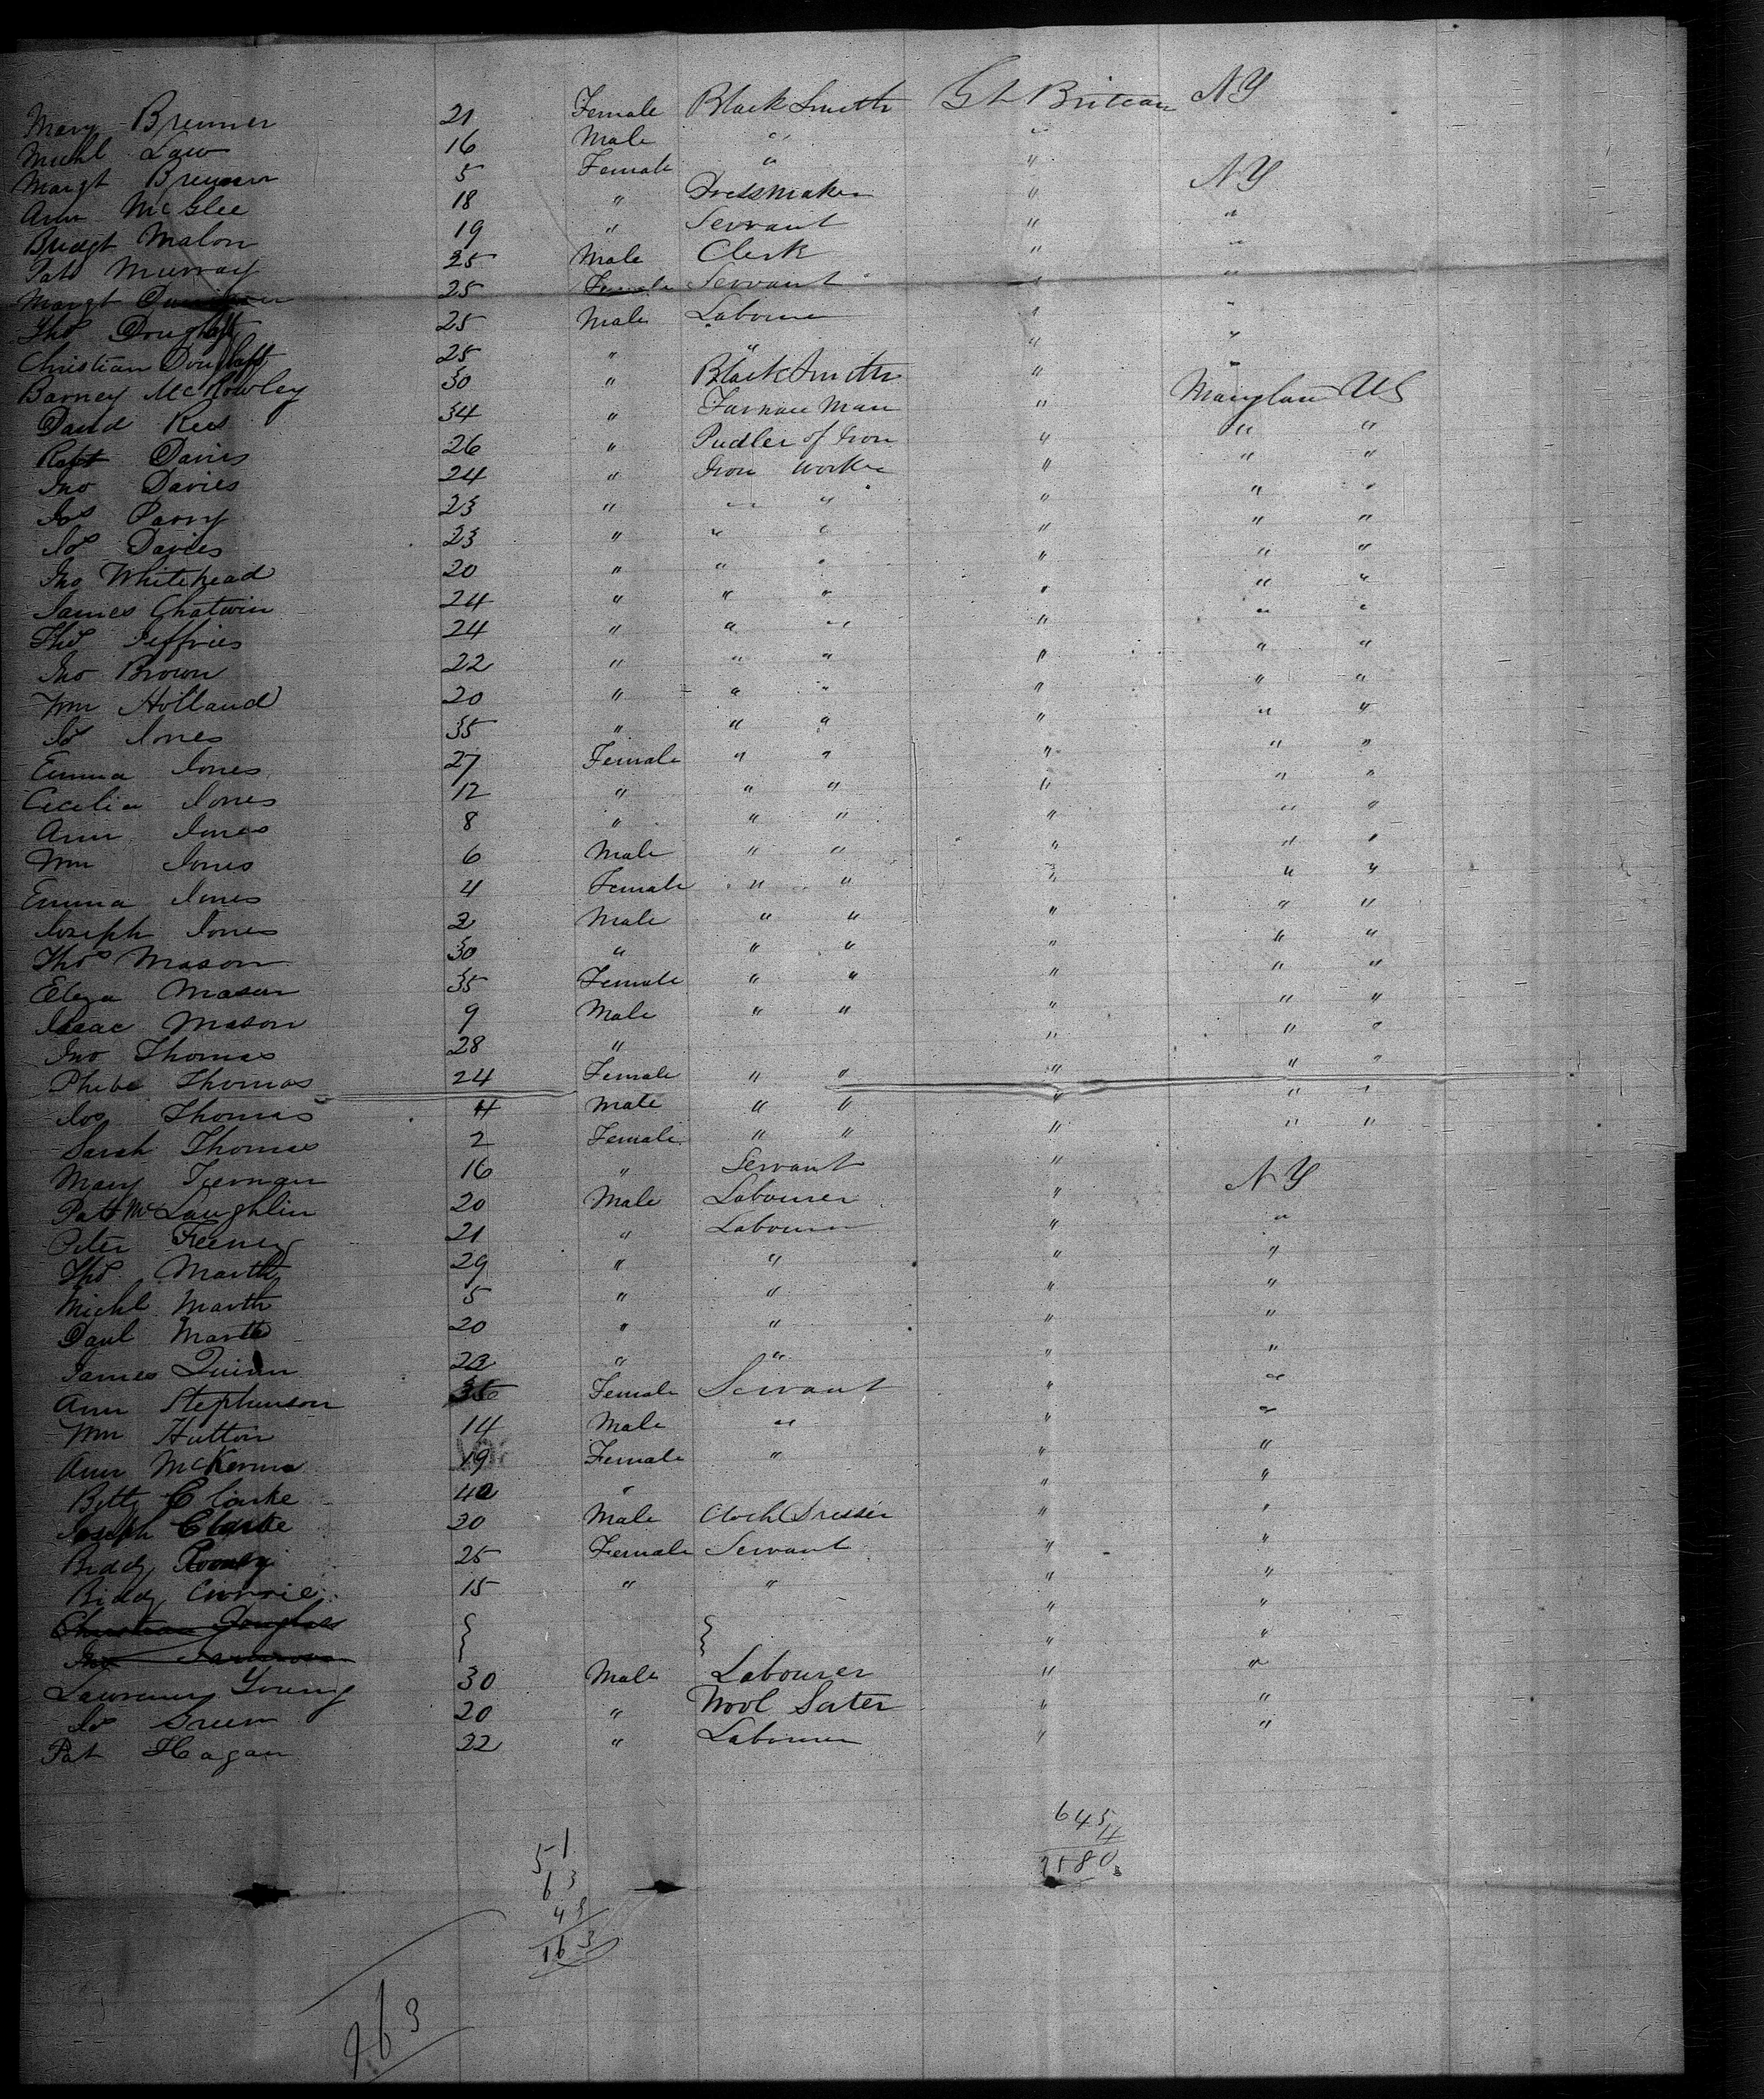 Mary Brenner 21 Female Black Smith Gt Britean NY
Michl Law 16 Male " "
Margt Brenner 5 Female " " NY
Ann McGlee 18 " Dressmaker " "
Bridgt Malon 19 " Servant " "
Patk Murray 25 Male Clerk " "
Margt 25 Female Servant " "
Thos Douglass 25 Male Labourer " "
Christian Douglass 25 " " " "
Barney McRowley 30 " Black Smith "
David Rees 34 " Furnace Man " Marylan US
Robt Davis 26 " Pudler of Iron " " "
Jno Davies 24 " Iron Worker " " "
Jos Parry 23 " " " " " "
Jos Davies 23 " " " " " "
Jno Whitehead 20 " " " " " "
James Chatwin 24 " " " " " "
Thos Jeffries 24 " " " " " "
Jno Brown 22 " " " " " "
Wm Holland 20 " " " " " "
Jos Jones 35 " " " " " "
Emma Jones 27 Female " " " " "
Cecelia Jones 12 " " " " " "
Ann Jones 8 " " " " " "
Wm Jones 6 Male " " " " "
Emma Jones 4 Female " " " " "
Joseph Jones 2 Male " " " " "
Thos Mason 30 " " " " " "
Eliza Mason 35 Female " " " " "
Isaac Mason 9 Male " " " " "
Jno Thomas 28 " " " "
Phebe Thomas 24 Female " " " " "
Jos Thomas 4 Male " " " " "
Sarah Thomas 2 Female " " " " "
Mary Tiernan 16 " Servant " NY
Patk McLaughlin 20 Male Labourer " "
Peter Feeney 21 " Labourer " "
Thos Marth 29 " " " "
Michl Marth 5 " " " "
Paul Marth 20 " " " "
James Quinn 23 " " " "
Ann Stephenson 35 Female Servant " "
Wm Hutton 14 Male " " "
Ann McKenna 19 Female " " "
Betty Clarke 40 " " "
Joseph Clarke 20 Male Cloth Dresser " "
Biddy Rooney 25 Female Servant " "
Biddy Currie 15 " " " "
Christian Douglass " "
Jno " "
Lawrence Young 30 Male Labourer " "
Jos Green 20 " Wool Sorter " "
Pat Hagan 22 " Labourer " "
645
4
2580
51
63
49
163
163